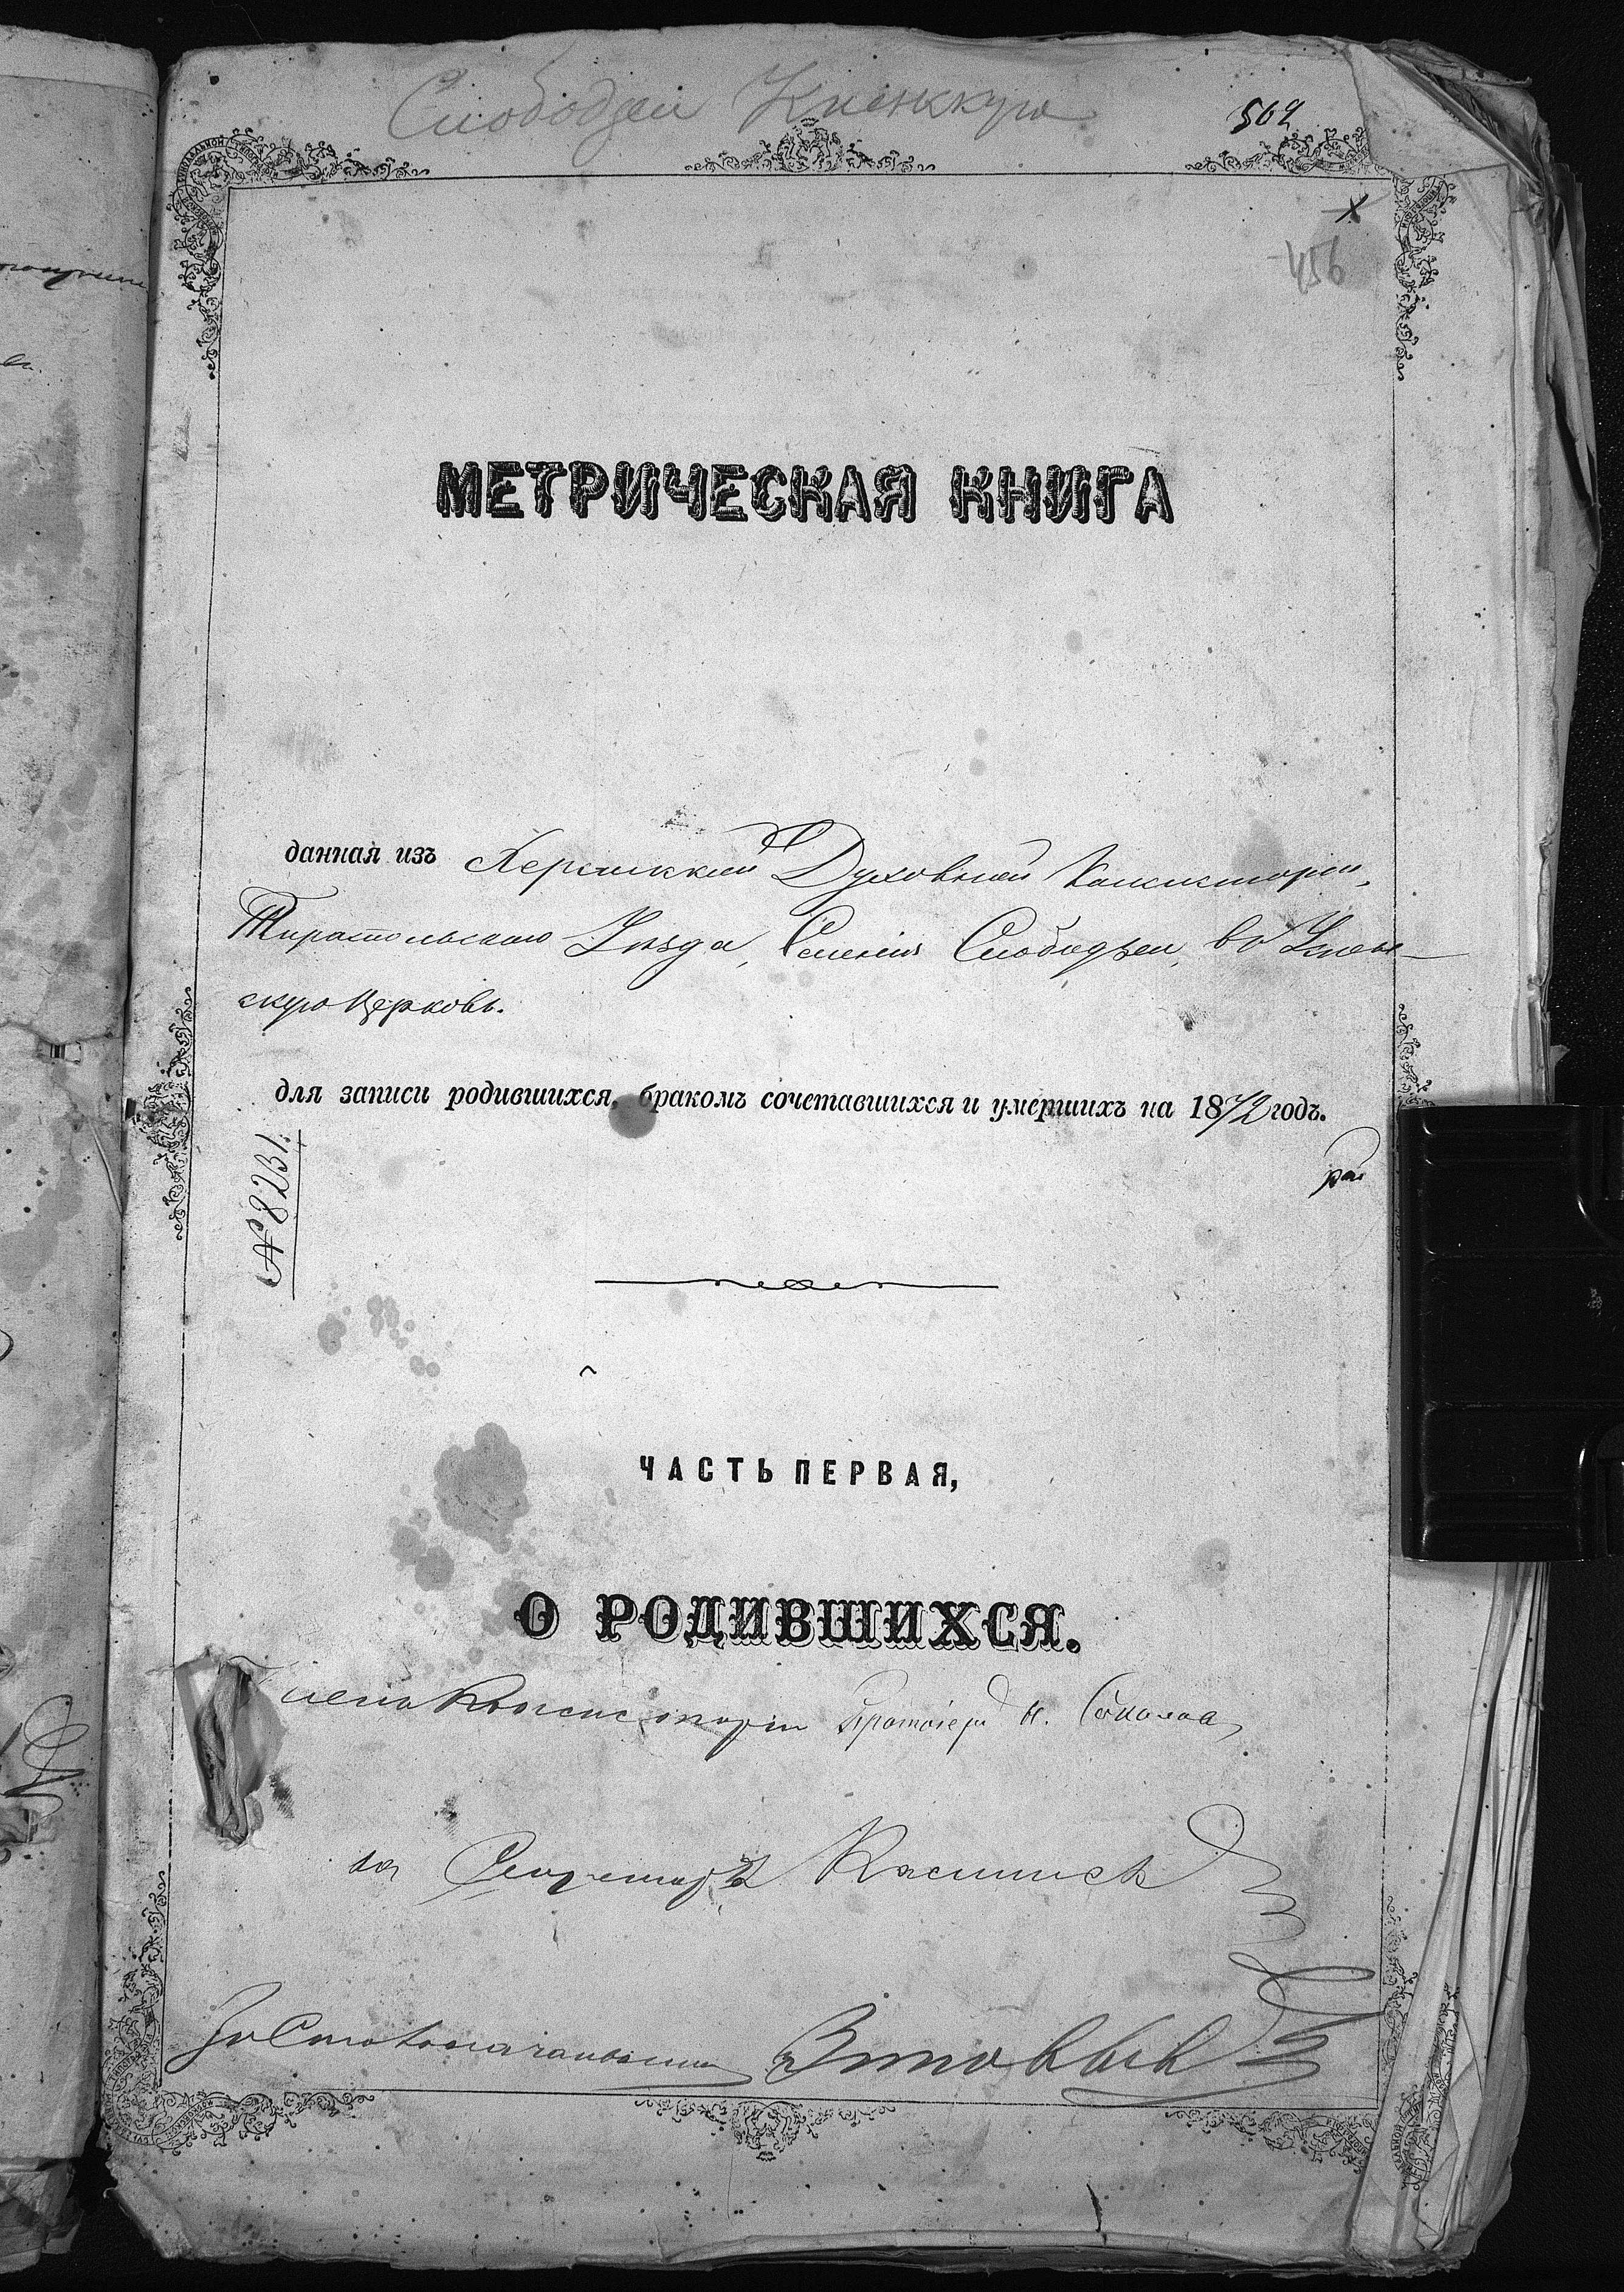 Слободзеи
504
х
456
МЕТРИЧЕСКАЯ КНИГА
данная изъ Херсонской Духовной Консисторіи,
Тираспольскаго Уѣзда, Селенія Слободзеи, въ Успен-
скую Церковь.
для записи родившихся, бракомъ сочетавшихся и умершихъ на 1872 годъ.
№ 8231.
ЧАСТЬ ПЕРВАЯ,
О РОДИВШИХСЯ.
Членъ Консисторіи Протоіерей Н. Соколовъ
за Секретаря
За Столоначальника